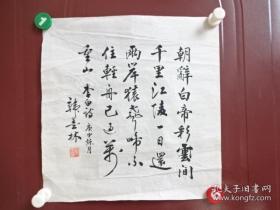 朝辭白帝彩雲間
千里江陵一日還
兩岸猿聲啼不
住輕舟已過萬
重山 李白詩 庚申
孔夫子旧书网